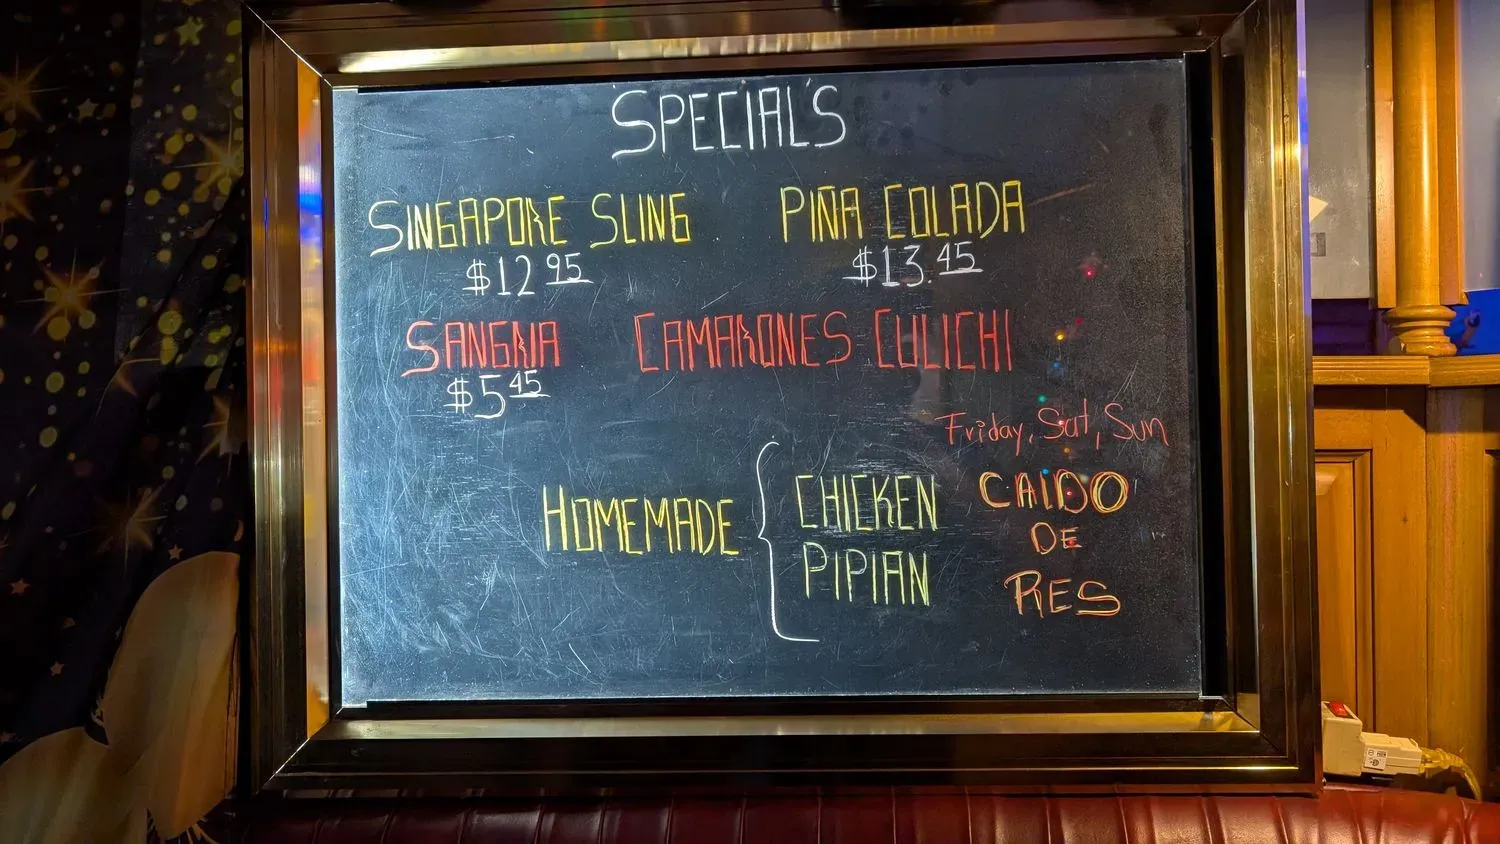 SPECIAL'S
SINGAPORE SLING
$12 95
PIÑA COLADA
$13.45
SANGRIA
$5 45
CAMARONES CULICHI
Friday, Sat, Sun
HOMEMADE
CHICKEN
PIPIAN
CALDO
DE
RES